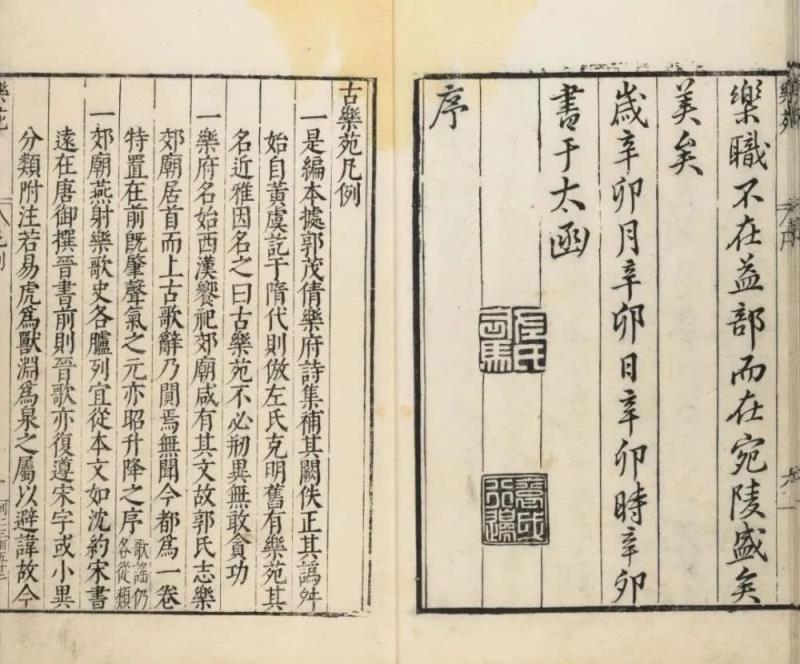 樂職不在益部而在宛陵盛矣
美矣
歲辛卯月辛卯日辛卯時辛卯
書于太函
序
古樂苑凡例
一是編本據郭茂倩樂府詩集補其闕佚正其譌舛
始自黃虞訖于隋代則倣左氏克明舊有樂苑其
名近雅因名之曰古樂苑不必刱異無敢貪功
一樂府名始西漢饗祀郊廟咸有其文故郭氏志樂
郊廟居首而上古歌辭乃闃焉無聞今都爲一卷
特置在前旣肇聲氣之元亦昭升降之序歌謠仍各從類
一郊廟燕射樂歌史各臚列宜從本文如沈約宋書
遠在唐御撰晉書前則晉歌亦復遵宋字或小異
分類附注若易虎爲獸淵爲泉之屬以避諱故今